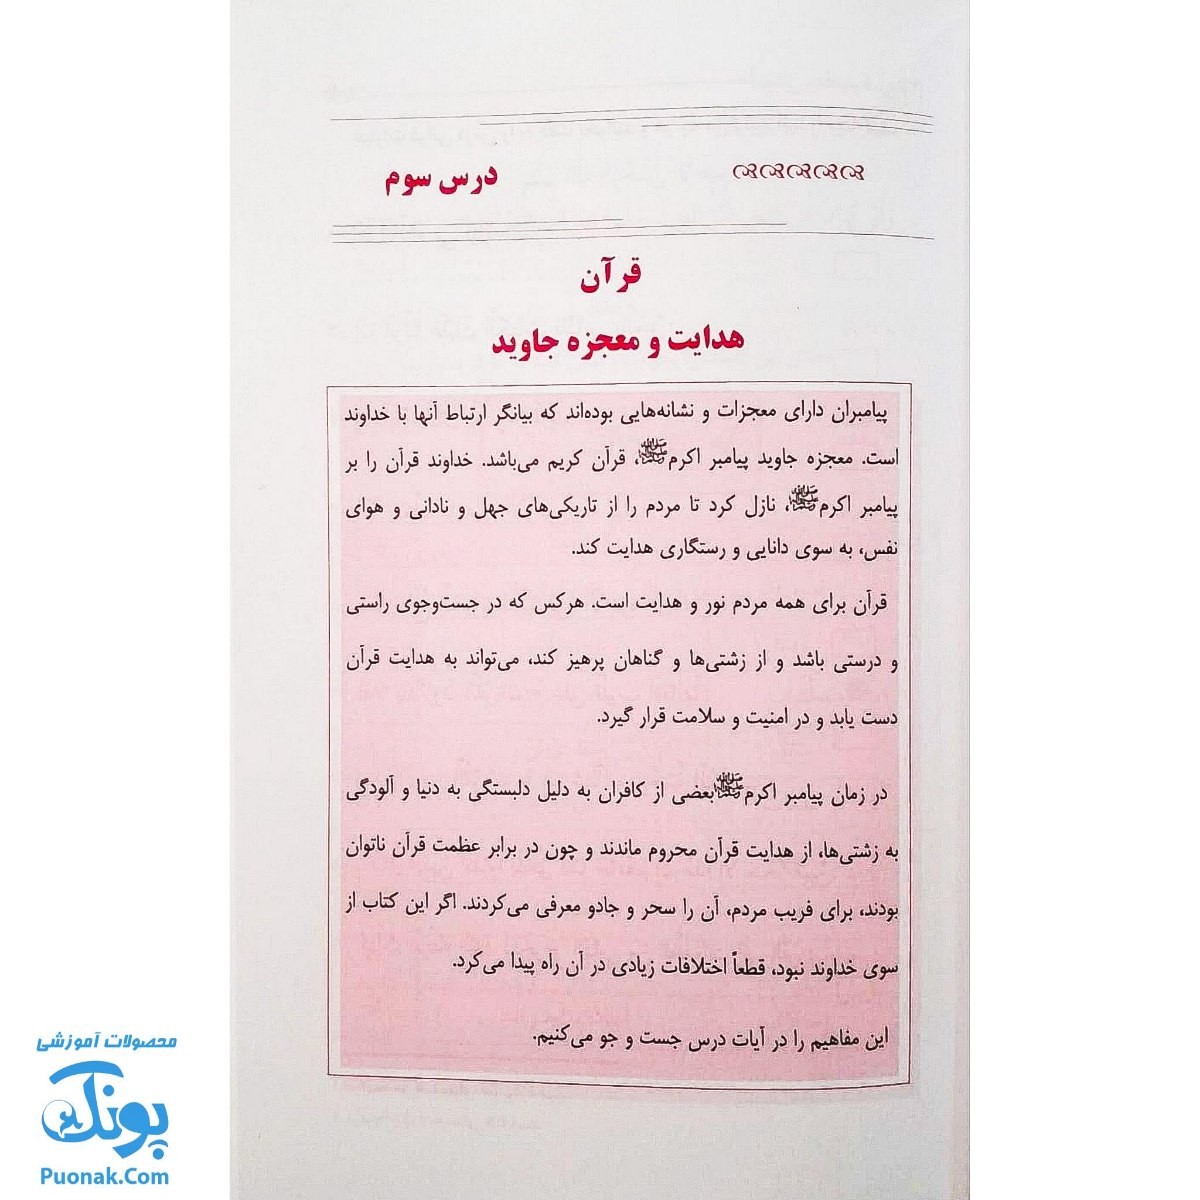 درس سوم
قرآن
هدایت و معجزه جاوید
پیامبران دارای معجزات و نشانه‌هایی بوده‌اند که بیانگر ارتباط آنها با خداوند
است. معجزه جاوید پیامبر اکرمﷺ، قرآن کریم می‌باشد. خداوند قرآن را بر
پیامبر اکرمﷺ، نازل کرد تا مردم را از تاریکی‌های جهل و نادانی و هوای
نفس، به سوی دانایی و رستگاری هدایت کند.
قرآن برای همه مردم نور و هدایت است. هرکس که در جست‌وجوی راستی
و درستی باشد و از زشتی‌ها و گناهان پرهیز کند، می‌تواند به هدایت قرآن
دست یابد و در امنیت و سلامت قرار گیرد.
در زمان پیامبر اکرمﷺبعضی از کافران به دلیل دلبستگی به دنیا و آلودگی
به زشتی‌ها، از هدایت قرآن محروم ماندند و چون در برابر عظمت قرآن ناتوان
بودند، برای فریب مردم، آن را سحر و جادو معرفی می‌کردند. اگر این کتاب از
سوی خداوند نبود، قطعاً اختلافات زیادی در آن راه پیدا می‌کرد.
این مفاهیم را در آیات درس جست و جو می‌کنیم.
محصولات آموزشی
پونک
Puonak.Com